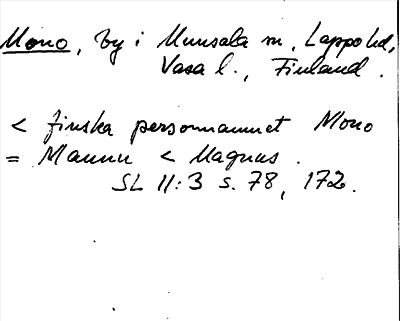 Mono, by i Munsala sn, Lappo hd,
Vasa l., Finland.
< finska personnamnet Mono
= Maunu < Magnus.
SL 11:3 s. 78, 172.